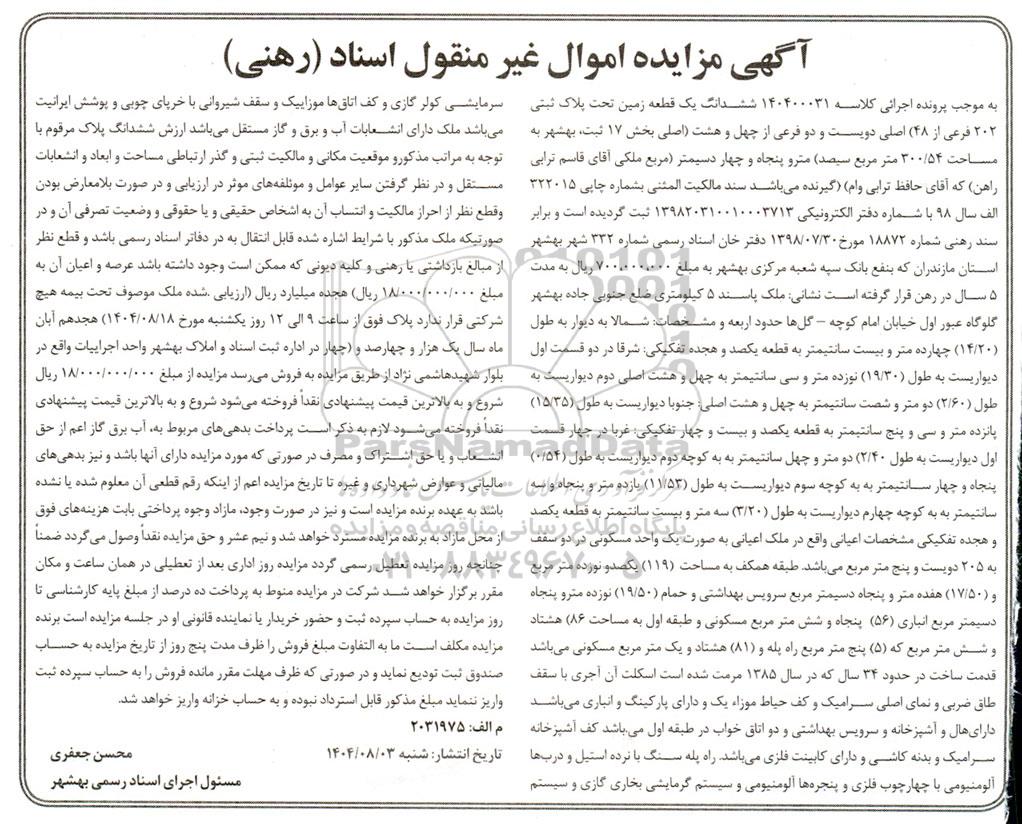 آگهی مزایده اموال غیر منقول اسناد (رهنی)
به موجب پرونده اجرائی کلاسه ۱۴۰۴۰۰۰۳۱ ششدانگ یک قطعه زمین تحت پلاک ثبتی
۲۰۲ فرعی از ۴۸) اصلی دویست و دو فرعی از چهل و هشت (اصلی بخش ۱۷ ثبت، بهشهر به
مساحت ۳۰۰/۵۴ متر مربع سیصد) مترو پنجاه و چهار دسیمتر (مربع ملکی آقای قاسم ترابی
راهن) که آقای حافظ ترابی وام) (گیرنده می‌باشد سند مالکیت المثنی بشماره چاپی ۳۲۲۰۱۵
الف سال ۹۸ با شماره دفتر الکترونیکی ۱۳۹۸۲۰۳۱۰۰۱۰۰۰۳۷۱۳ ثبت گردیده است و برابر
سند رهنی شماره ۱۸۸۷۲ مورخ ۱۳۹۸/۰۷/۳۰ دفتر خان اسناد رسمی شماره ۳۳۲ شهر بهشهر
استان مازندران که بنفع بانک سپه شعبه مرکزی بهشهر به مبلغ ۷۰۰،۰۰۰،۰۰۰ ریال به مدت
۵ سال در رهن قرار گرفته است نشانی: ملک پاسند ۵ کیلومتری ضلع جنوبی جاده بهشهر
گلوگاه عبور اول خیابان امام کوچه – گل‌ها حدود اربعه و مشخصات: شمالا به دیوار به طول
(۱۴/۲۰) چهارده متر و بیست سانتیمتر به قطعه یکصد و هجده تفکیکی: شرقا در دو قسمت اول
دیواریست به طول (۱۹/۳۰) نوزده متر و سی سانتیمتر به چهل و هشت اصلی دوم دیواریست به
طول (۲/۶۰) دو متر و شصت سانتیمتر به چهل و هشت اصلی: جنوبا دیواریست به طول (۱۵/۳۵)
پانزده متر و سی و پنج سانتیمتر به قطعه یکصد و بیست و چهار تفکیکی: غربا در چهار قسمت
اول دیواریست به طول (۲/۴۰ دو متر و چهل سانتیمتر به به کوچه دوم دیواریست به طول (۰/۵۴)
پنجاه و چهار سانتیمتر به به کوچه سوم دیواریست به طول (۱۱/۵۳) یازده متر و پنجاه و سه
سانتیمتر به به کوچه چهارم دیواریست به طول (۳/۲۰) سه متر و بیست سانتیمتر به قطعه یکصد
و هجده تفکیکی مشخصات اعیانی واقع در ملک اعیانی به صورت یک واحد مسکونی در دو سقف
به ۲۰۵ دویست و پنج متر مربع می‌باشد. طبقه همکف به مساحت (۱۱۹) یکصدو نوزده متر مربع
و (۱۷/۵۰) هفده متر و پنجاه دسیمتر مربع سرویس بهداشتی و حمام (۱۹/۵۰) نوزده مترو پنجاه
دسیمتر مربع انباری (۵۶) پنجاه و شش متر مربع مسکونی و طبقه اول به مساحت ۸۶) هشتاد
و شش متر مربع که (۵) پنج متر مربع راه پله و (۸۱) هشتاد و یک متر مربع مسکونی می‌باشد
قدمت ساخت در حدود ۳۴ سال که در سال ۱۳۸۵ مرمت شده است اسکلت آن آجری با سقف
طاق ضربی و نمای اصلی سرامیک و کف حیاط موزاء یک و دارای پارکینگ و انباری می‌باشد
دارای‌هال و آشپزخانه و سرویس بهداشتی و دو اتاق خواب در طبقه اول می.باشد کف آشپزخانه
سرامیک و بدنه کاشی و دارای کابینت فلزی می‌باشد. راه پله سنگ با نرده استیل و درب‌ها
آلومنیومی با چهارچوب فلزی و پنجره‌ها آلومنیومی و سیستم گرمایشی بخاری گازی و سیستم
سرمایشی کولر گازی و کف اتاق‌ها موزاییک و سقف شیروانی با خرپای چوبی و پوشش ایرانیت
می‌باشد ملک دارای انشعابات آب و برق و گاز مستقل می‌باشد ارزش ششدانگ پلاک مرقوم با
توجه به مراتب مذکورو موقعیت مکانی و مالکیت ثبتی و گذر ارتباطی مساحت و ابعاد و انشعابات
مستقل و در نظر گرفتن سایر عوامل و موئلفه‌های موثر در ارزیابی و در صورت بلامعارض بودن
وقطع نظر از احراز مالکیت و انتساب آن به اشخاص حقیقی و یا حقوقی و وضعیت تصرفی آن و در
صورتیکه ملک مذکور با شرایط اشاره شده قابل انتقال به در دفاتر اسناد رسمی باشد و قطع نظر
از مبالغ بازداشتی یا رهنی و کلیه دیونی که ممکن است وجود داشته باشد عرصه و اعیان آن به
مبلغ ۱۸/۰۰۰/۰۰۰/۰۰۰ ریال) هجده میلیارد ریال (ارزیابی .شده ملک موصوف تحت بیمه هیچ
شرکتی قرار ندارد پلاک فوق از ساعت ۹ الی ۱۲ روز یکشنبه مورخ ۱۴۰۴/۰۸/۱۸) هجدهم آبان
ماه سال یک هزار و چهارصد و (چهار در اداره ثبت اسناد و املاک بهشهر واحد اجراییات واقع در
بلوار شهیدهاشمی نژاد از طریق مزایده به فروش می‌رسد مزایده از مبلغ ۱۸/۰۰۰/۰۰۰/۰۰۰ ریال
شروع و به بالاترین قیمت پیشنهادی نقداً فروخته می‌شود شروع و به بالاترین قیمت پیشنهادی
نقداً فروخته می‌شود لازم به ذکر است پرداخت بدهی‌های مربوط به، آب برق گاز اعم از حق
انشعاب و یا حق اشتراک و مصرف در صورتی که مورد مزایده دارای آنها باشد و نیز بدهی‌های
مالیاتی و عوارض شهرداری و غیره تا تاریخ مزایده اعم از اینکه رقم قطعی آن معلوم شده یا نشده
باشد به عهده برنده مزایده است و نیز در صورت وجود، مازاد وجوه پرداختی بابت هزینه‌های فوق
از محل مازاد به برنده مزایده مسترد خواهد شد و نیم عشر و حق مزایده نقداً وصول می‌گردد ضمناً
چنانچه روز مزایده تعطیل رسمی گردد مزایده روز اداری بعد از تعطیلی در همان ساعت و مکان
مقرر برگزار خواهد شد شرکت در مزایده منوط به پرداخت ده درصد از مبلغ پایه کارشناسی تا
روز مزایده به حساب سپرده ثبت و حضور خریدار یا نماینده قانونی او در جلسه مزایده است برنده
مزایده مکلف است ما به التفاوت مبلغ فروش را ظرف مدت پنج روز از تاریخ مزایده به حساب
صندوق ثبت تودیع نماید و در صورتی که ظرف مهلت مقرر مانده فروش را به حساب سپرده ثبت
واریز ننماید مبلغ مذکور قابل استرداد نبوده و به حساب خزانه واریز خواهد شد.
م الف: ۲۰۳۱۹۷۵
تاریخ انتشار: شنبه ۱۴۰۴/۰۸/۰۳
محسن جعفری
مسئول اجرای اسناد رسمی بهشهر
ParsNamadData
پایگاه اطلاع رسانی مناقصه و مزایده
۰۲۱-۸۸۳۴۹۶۷۰-۵